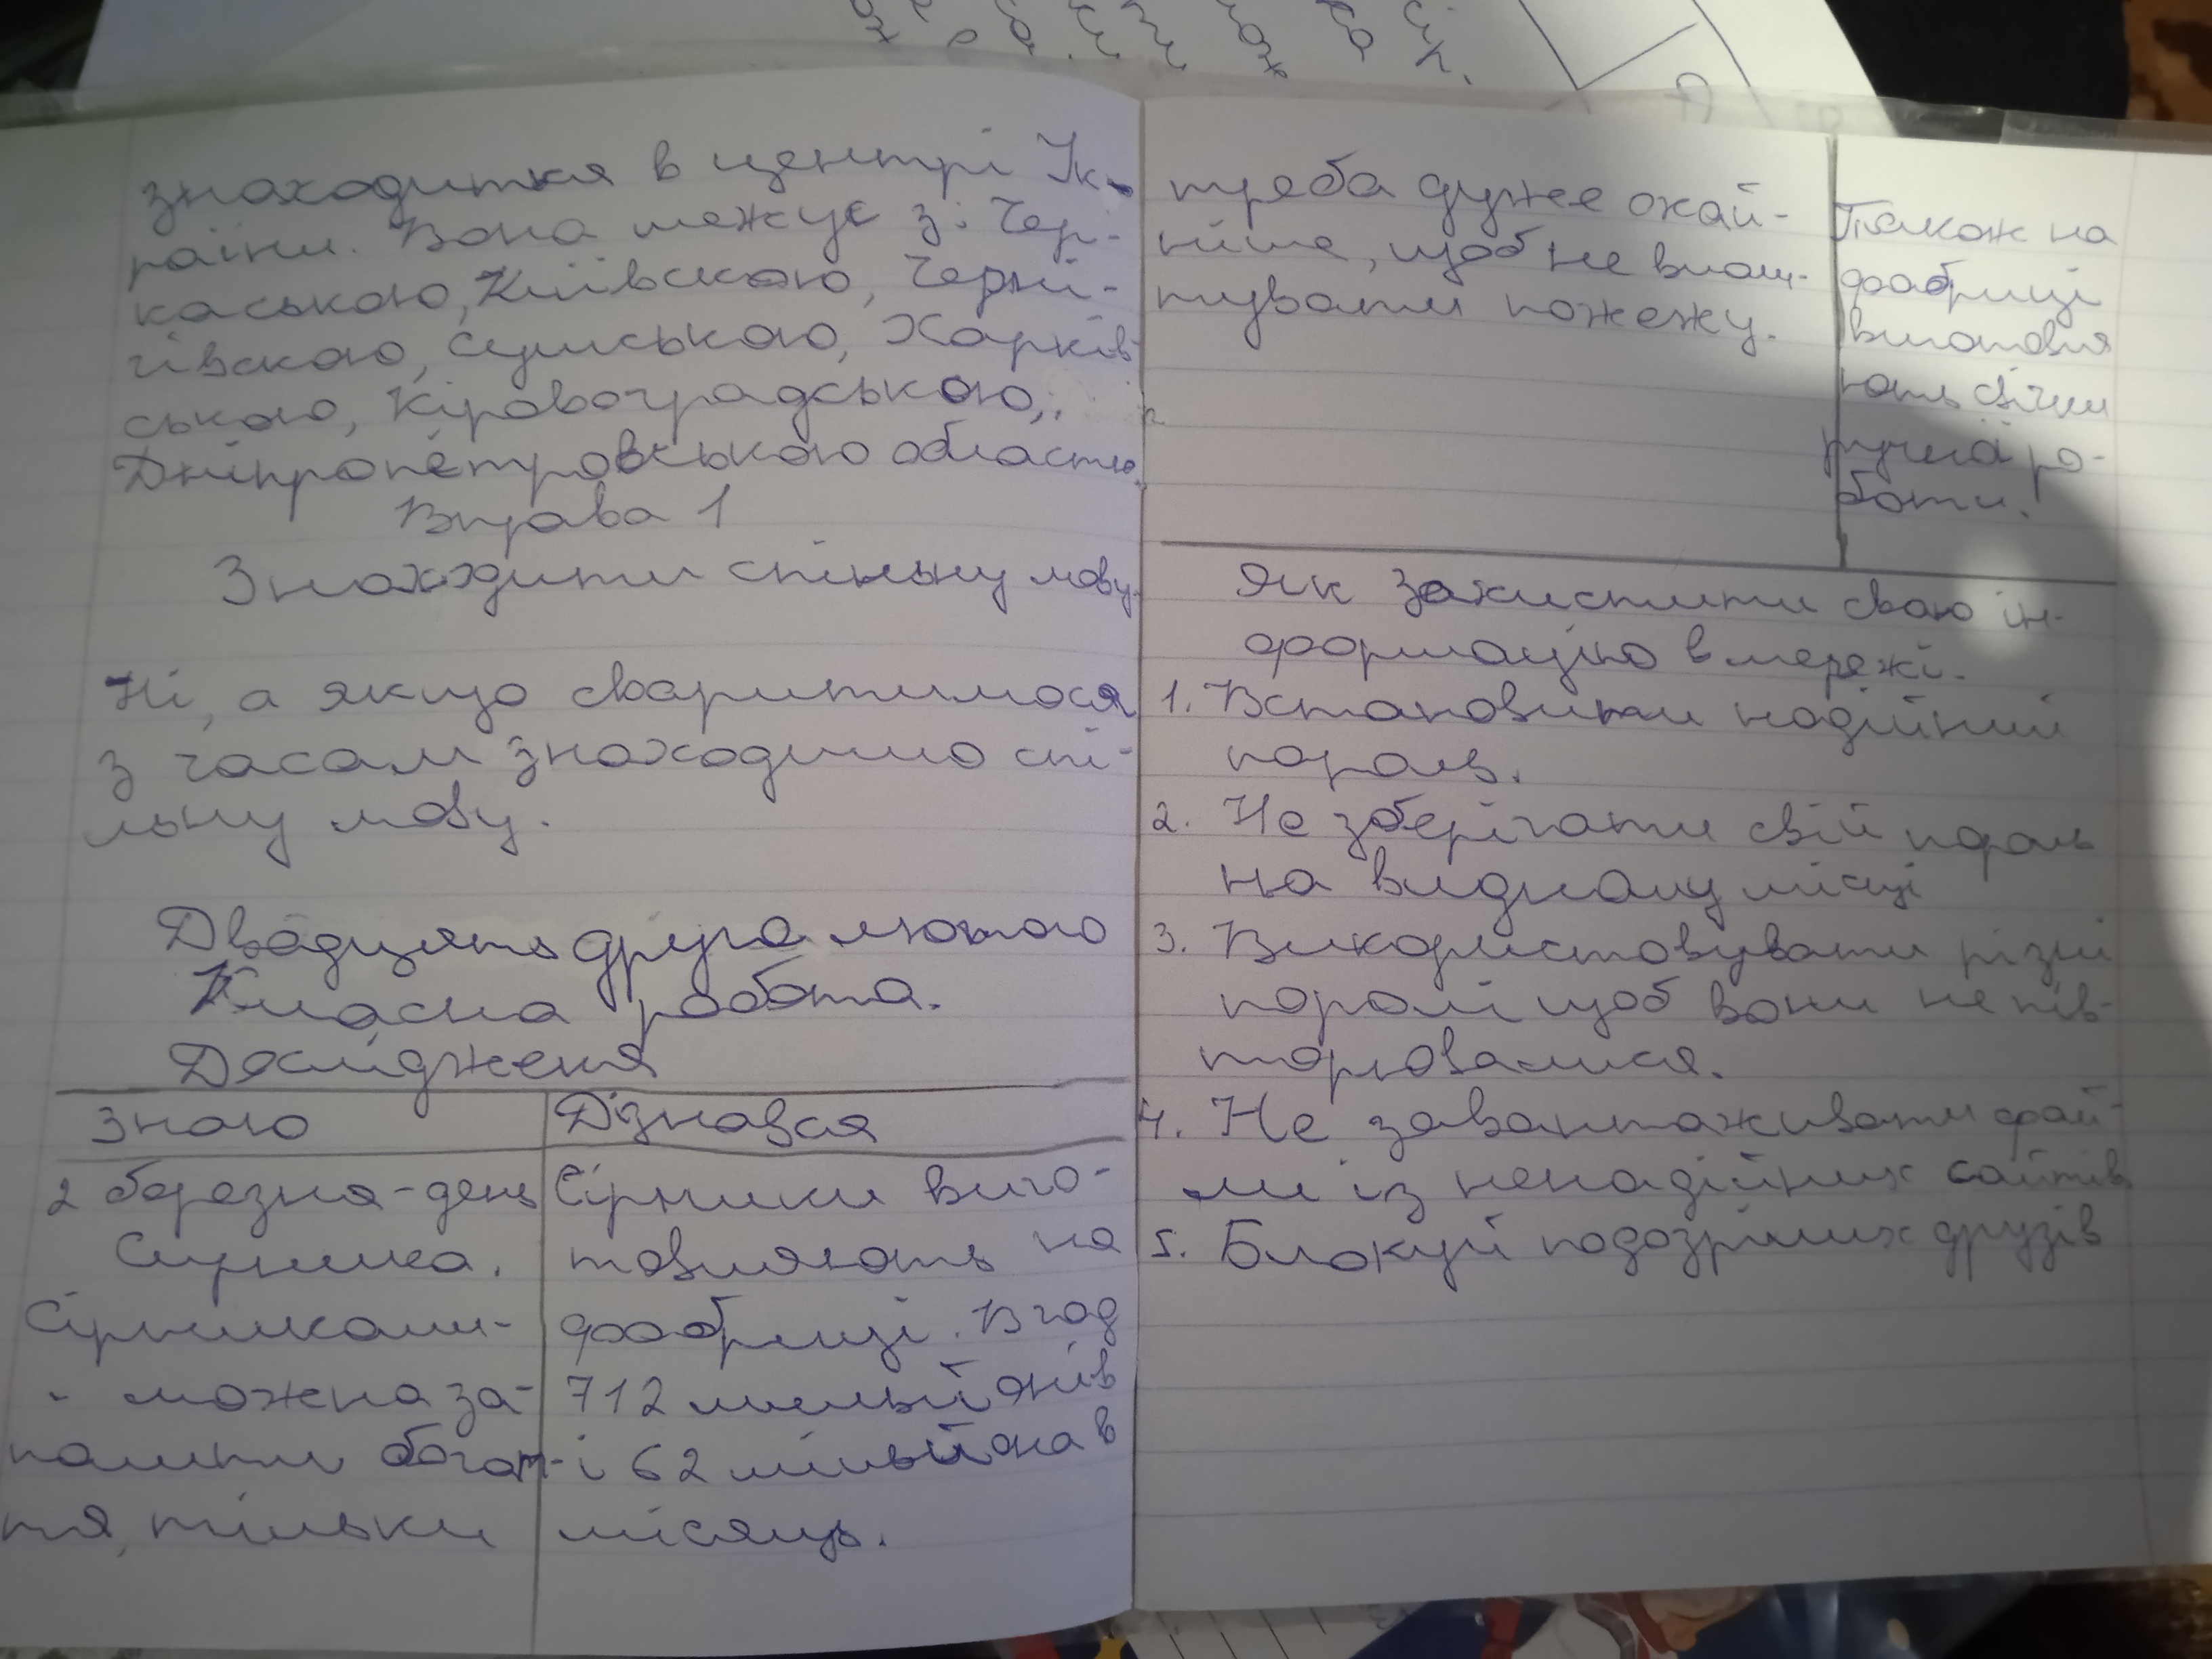 знаходиться в центрі Ук-
раїни. Вона межує з: Чер-
каською, Київскою, Черні-
гівскою, Сумською, Харків-
ською, Кіровоградською,
Дніпропетровською областю.
Вправа 1
Знаходити спільну мову.
Ні, а якщо сваритимося
з часам знаходимо спі-
льну мову.
Двадцять друге лютого
Класна робота.
Дослідженя
Знаю
Дізнався
2 березня - день
Сірника.
Сірниками -
- можна за-
палити багат-
тя, тільки
Сірники виго-
товляють на
фабриці. В год
712 мильйонів
і 62 мільйона в
місяць.
треба дуже охай-
ніше, щоб не влаш-
тувати пожежу.
Також на
фабриці
виготовля
ють свічки
ручної ро-
боти.
Як захистити свою ін-
формацію в мережі.
1. Встановити надійний
пароль.
2. Не зберігати свій пароль
на видному місці
3. Використовувати різні
паролі щоб вони не пов-
торювалися.
4. Не завантаживати фай-
ли із ненадійних сайтів
5. Блокуй подозрілих друзів